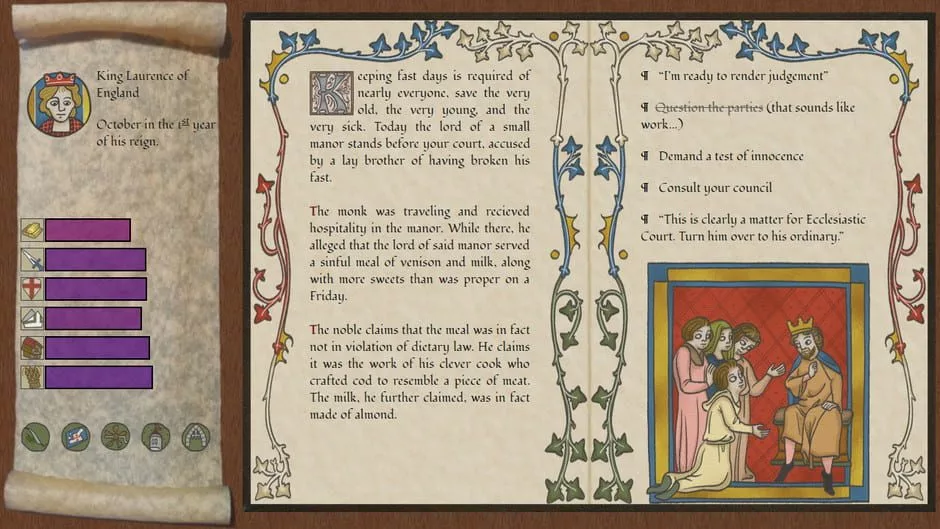 King Laurence of
England
October in the 1st year
of his reign.
Keeping fast days is required of
nearly everyone, save the very
old, the very young, and the
very sick. Today the lord of a small
manor stands before your court, accused
by a lay brother of having broken his
fast.
The monk was traveling and recieved
hospitality in the manor. While there, he
alleged that the lord of said manor served
a sinful meal of venison and milk, along
with more sweets than was proper on a
Friday.
The noble claims that the meal was in fact
not in violation of dietary law. He claims
it was the work of his clever cook who
crafted cod to resemble a piece of meat.
The milk, he further claimed, was in fact
made of almond.
¶ "I'm ready to render judgement"
¶ Question the parties (that sounds like
work...)
¶ Demand a test of innocence
¶ Consult your council
¶ "This is clearly a matter for Ecclesiastic
Court. Turn him over to his ordinary."